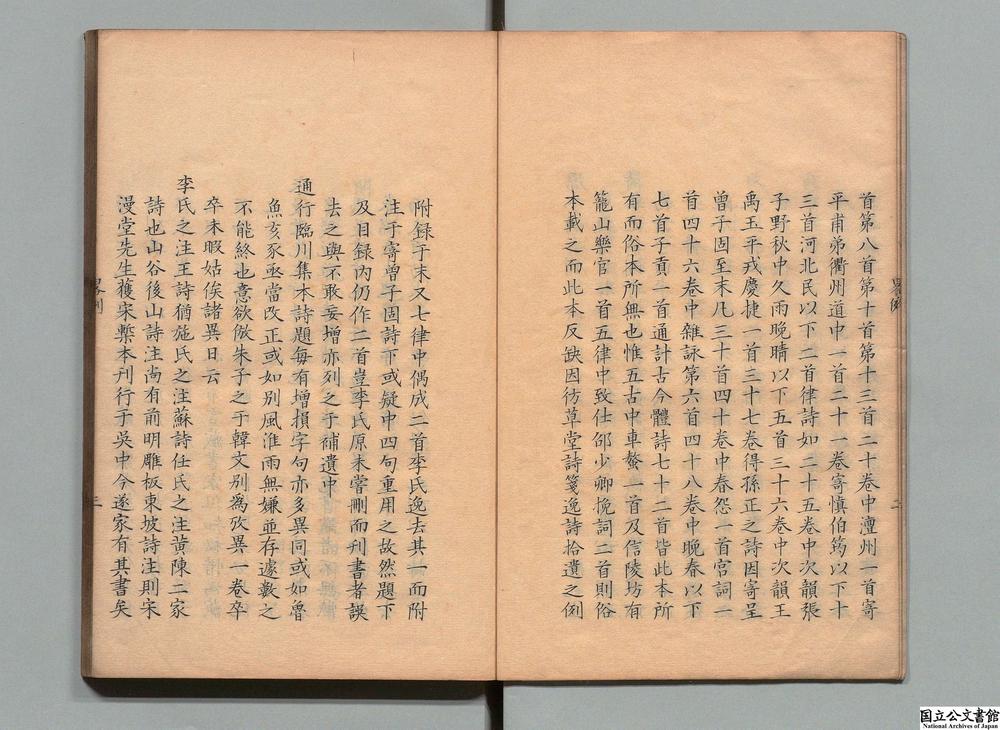 首第八首第十首第十三首二十卷中澶州一首寄
平甫弟衢州道中一首二十一卷寄慎伯筠以下十
三首河北民以下二首律詩如二十五卷中次韻張
子野秋中久雨晚晴以下五首三十六卷中次韻王
禹玉平戎慶捷一首三十七卷得孫正之詩因寄呈
曾子固至末凡三十首四十卷中春怨一首宮詞一
首四十六卷中雜詠第六首四十八卷中晚春以下
七首子貢一首通計古今體詩七十二首皆此本所
有而俗本所無也惟五古中車螯一首及信陵坊有
籠山樂官一首五律中致仕邵少卿挽詞二首則俗
本載之而此本反缺因彷草堂詩箋逸詩拾遺之例
附錄于末又七律中偶成二首李氏逸去其一而附
注于寄曾子固詩下或疑中四句重用之故然題下
及目録內仍作二首豈李氏原未嘗刪而刊書者誤
去之與不敢妄增亦列之于補遺中
通行臨川集本詩題每有增損字句亦多異同或如魯
魚亥豕亟當改正或如別風淮雨無嫌並存遽數之
不能終也意欲倣朱子之于韓文別為攷異一卷卒
卒未暇姑俟諸異日云
李氏之注王詩猶施氏之注蘇詩任氏之注黃陳二家
詩也山谷後山詩注尚有前明雕板東坡詩注則宋
漫堂先生獲宋槧本刊行于吳中今遂家有其書矣
畧例
二
畧例
三
国立公文書館
National Archives of Japan